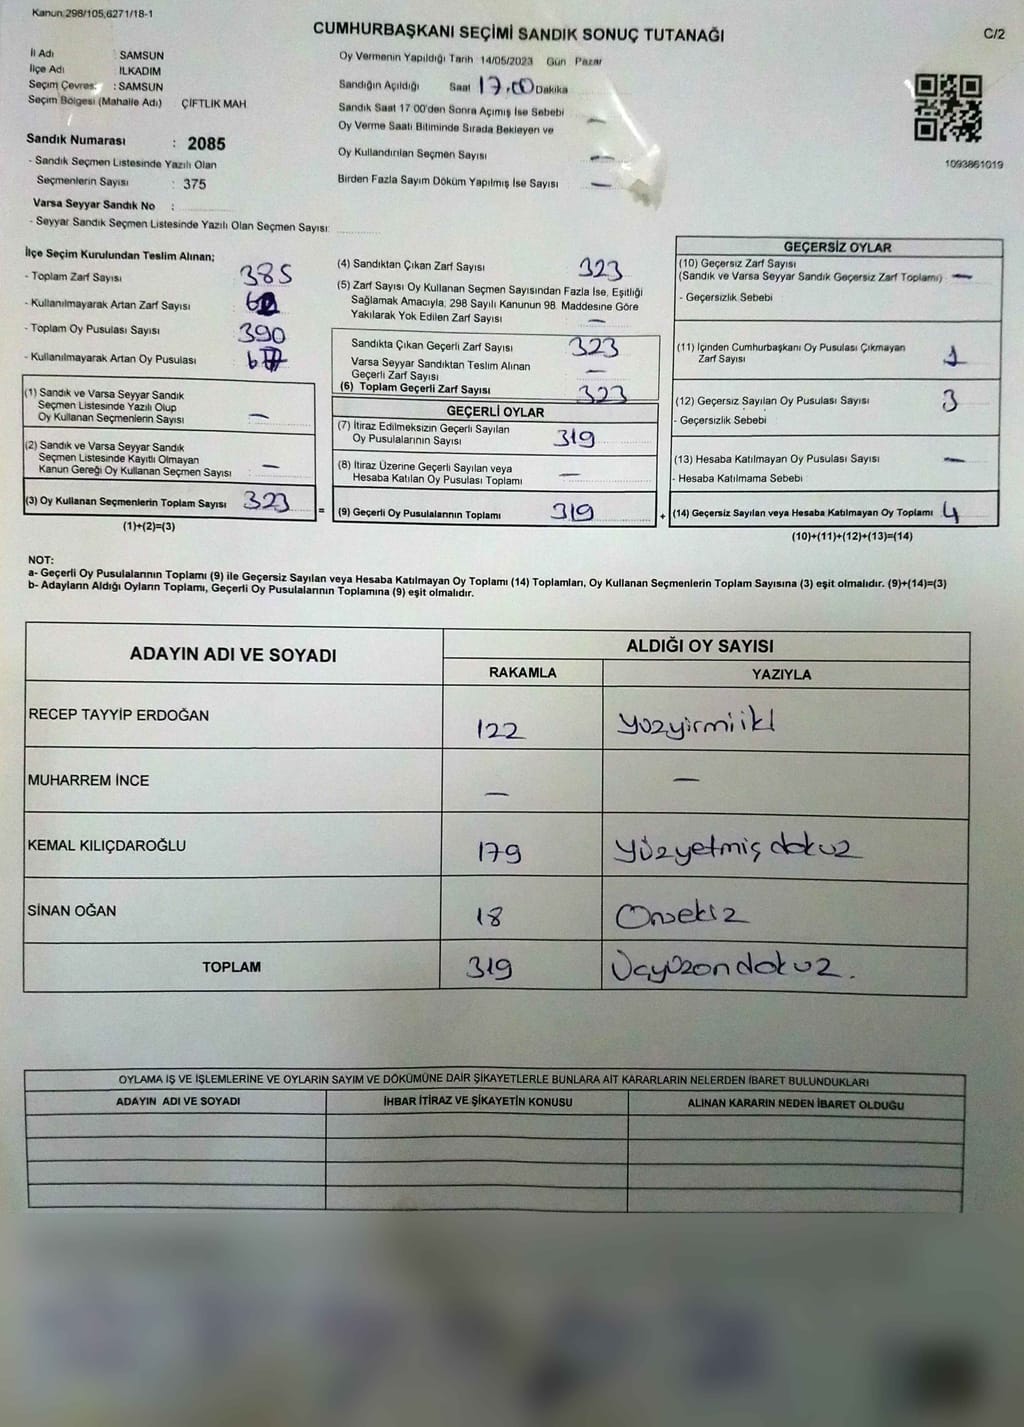 Kanun:298/105,6271/18-1
CUMHURBAŞKANI SEÇİMİ SANDIK SONUÇ TUTANAĞI
C/2
İl Adı : SAMSUN
İlçe Adı : İLKADIM
Seçim Çevresi : SAMSUN
Seçim Bölgesi (Mahalle Adı) ÇİFTLİK MAH.
Sandık Numarası : 2085
- Sandık Seçmen Listesinde Yazılı Olan
Seçmenlerin Sayısı : 375
Varsa Seyyar Sandık No :
- Seyyar Sandık Seçmen Listesinde Yazılı Olan Seçmen Sayısı:
Oy Vermenin Yapıldığı Tarih 14/05/2023 Gün Pazar
Sandığın Açıldığı Saat 17.00 Dakika
Sandık Saat 17.00'den Sonra Açımış İse Sebebi
Oy Verme Saati Bitiminde Sırada Bekleyen ve —
Oy Kullandırılan Seçmen Sayısı —
Birden Fazla Sayım Döküm Yapılmış İse Sayısı —
1093861019
İlçe Seçim Kurulundan Teslim Alınan;
- Toplam Zarf Sayısı 385
- Kullanılmayarak Artan Zarf Sayısı
- Toplam Oy Pusulası Sayısı 390
- Kullanılmayarak Artan Oy Pusulası
(1) Sandık ve Varsa Seyyar Sandık
Seçmen Listesinde Yazılı Olup
Oy Kullanan Seçmenlerin Sayısı —
(2) Sandık ve Varsa Seyyar Sandık
Seçmen Listesinde Kayıtlı Olmayan
Kanun Gereği Oy Kullanan Seçmen Sayısı —
(3) Oy Kullanan Seçmenlerin Toplam Sayısı 323
(1)+(2)=(3)
=
(4) Sandıktan Çıkan Zarf Sayısı 323
(5) Zarf Sayısı Oy Kullanan Seçmen Sayısından Fazla İse, Eşitliği
Sağlamak Amacıyla, 298 Sayılı Kanunun 98. Maddesine Göre
Yakılarak Yok Edilen Zarf Sayısı —
Sandıkta Çıkan Geçerli Zarf Sayısı 323
Varsa Seyyar Sandıktan Teslim Alınan
Geçerli Zarf Sayısı —
(6) Toplam Geçerli Zarf Sayısı 323
GEÇERLİ OYLAR
(7) İtiraz Edilmeksizin Geçerli Sayılan
Oy Pusulalarının Sayısı 319
(8) İtiraz Üzerine Geçerli Sayılan veya
Hesaba Katılan Oy Pusulası Toplamı —
(9) Geçerli Oy Pusulalarının Toplamı 319
+
GEÇERSİZ OYLAR
(10) Geçersiz Zarf Sayısı
(Sandık ve Varsa Seyyar Sandık Geçersiz Zarf Toplamı) —
- Geçersizlik Sebebi
(11) İçinden Cumhurbaşkanı Oy Pusulası Çıkmayan
Zarf Sayısı 1
(12) Geçersiz Sayılan Oy Pusulası Sayısı 3
- Geçersizlik Sebebi
(13) Hesaba Katılmayan Oy Pusulası Sayısı —
- Hesaba Katılmama Sebebi
(14) Geçersiz Sayılan veya Hesaba Katılmayan Oy Toplamı 4
(10)+(11)+(12)+(13)=(14)
NOT:
a- Geçerli Oy Pusulalarının Toplamı (9) ile Geçersiz Sayılan veya Hesaba Katılmayan Oy Toplamı (14) Toplamları, Oy Kullanan Seçmenlerin Toplam Sayısına (3) eşit olmalıdır. (9)+(14)=(3)
b- Adayların Aldığı Oyların Toplamı, Geçerli Oy Pusulalarının Toplamına (9) eşit olmalıdır.
ADAYIN ADI VE SOYADI ALDIĞI OY SAYISI
RAKAMLA YAZIYLA
RECEP TAYYİP ERDOĞAN 122 Yüzyirmiiki
MUHARREM İNCE — —
KEMAL KILIÇDAROĞLU 179 Yüzyetmiş dokuz
SİNAN OĞAN 18 Onsekiz
TOPLAM 319 Üçyüzondokuz.
OYLAMA İŞ VE İŞLEMLERİNE VE OYLARIN SAYIM VE DÖKÜMÜNE DAİR ŞİKAYETLERLE BUNLARA AİT KARARLARIN NELERDEN İBARET BULUNDUKLARI
ADAYIN ADI VE SOYADI İHBAR İTİRAZ VE ŞİKAYETİN KONUSU ALINAN KARARIN NEDEN İBARET OLDUĞU